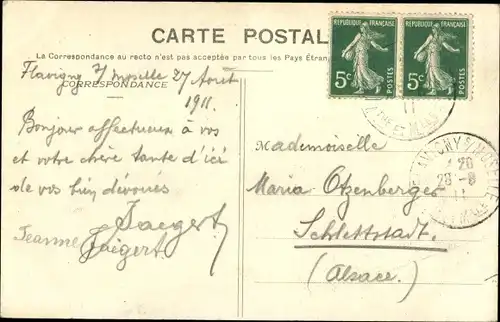 CARTE POSTAL
La Correspondance au recto n'est pas acceptée par tous les Pays Étran
RÉPUBLIQUE FRANÇAISE
5c
POSTES
RÉPUBLIQUE FRANÇAISE
5c
POSTES
Flavigny s/ Moselle 27 Août
1911.
CORRESPONDANCE
Bonjour affectueux à vos
et votre chère tante d'ici
de vos bien dévoués
Jaegert
Jeanne Jaegert
Mademoiselle
Maria Otzenberger
Schlettstadt.
(Alsace)
FLAVIGNY S/ MOSELLE
28 - 8
11